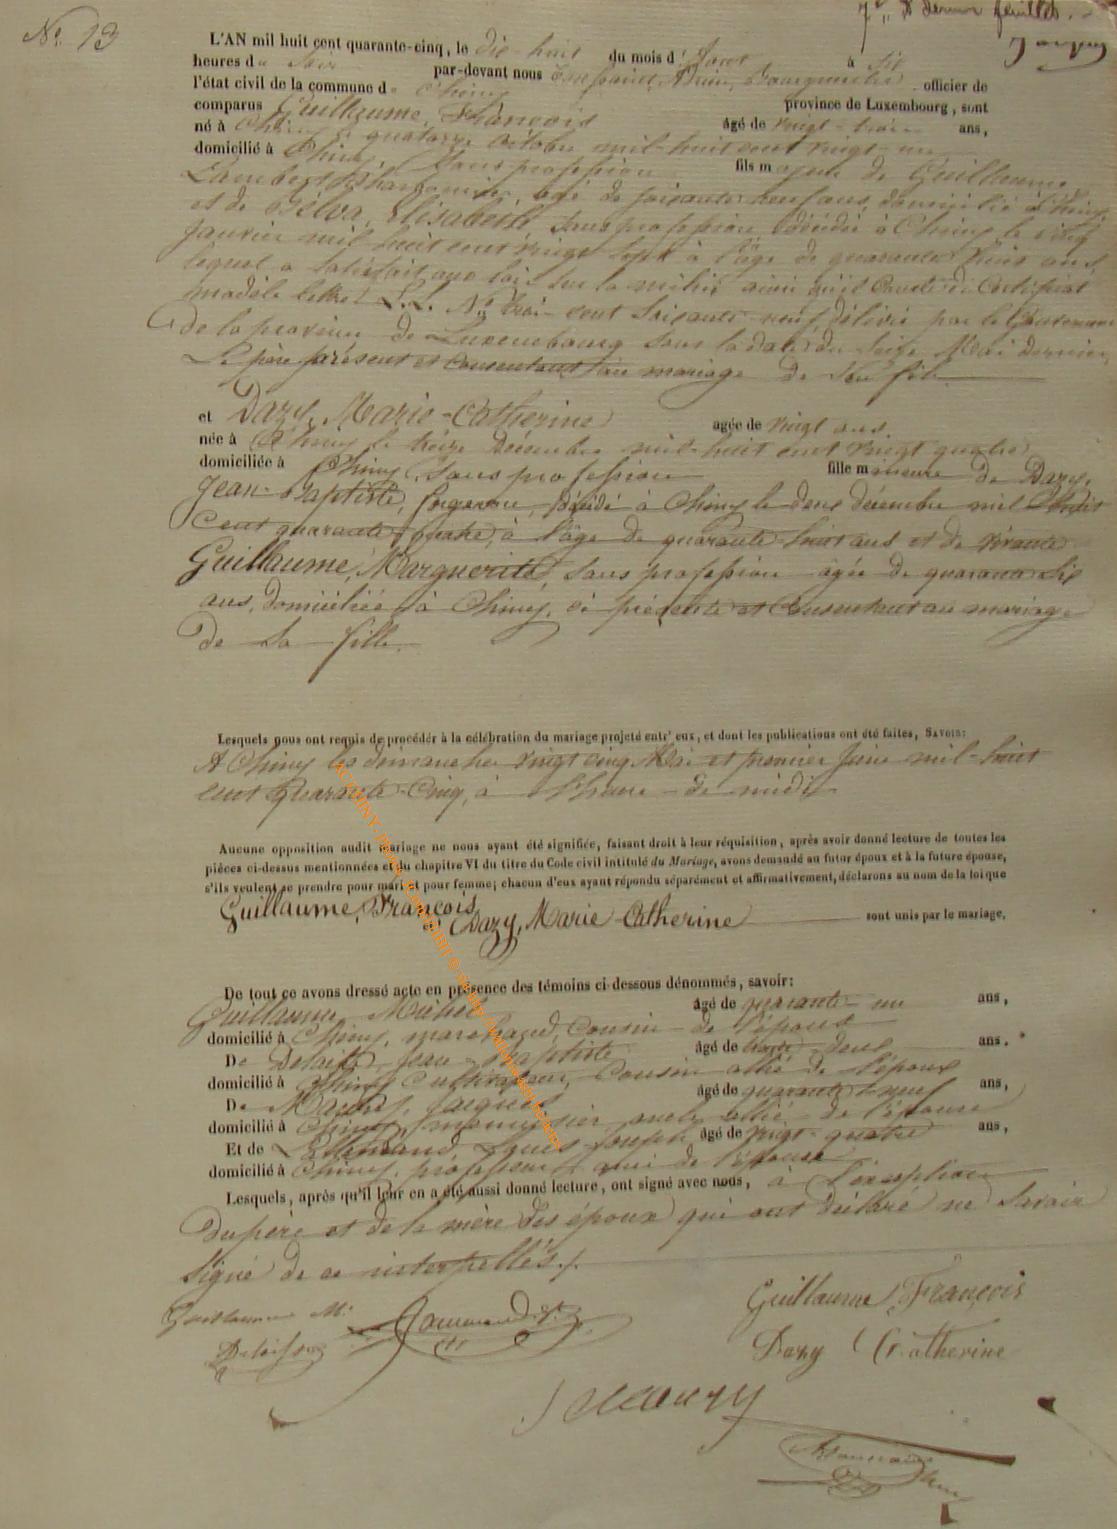 No. 13
7e et dernier feuillet.
L'AN mil huit cent quarante-cinq, le dix-huit du mois d'Aout à six
heures du soir par-devant nous Bourgmestre officier de
l'état civil de la commune de Chiny province de Luxembourg, sont
comparus Guillaume, François âgé de vingt-trois ans,
né à Chiny le quatorze octobre mil-huit cent vingt-un
domicilié à Chiny, sans profession fils majeur de Guillaume,
Lambert, âgé de soixante neuf ans, domicilié à Chiny,
et de Gelva, Elisabeth, sans profession, décédée à Chiny le cinq
janvier mil huit cent vingt sept à l'âge de quarante trois ans,
lequel a satisfait aux lois sur la milice ainsi qu'il conste du Certificat
modèle lettre L.L. No. trois cent soixante-neuf, délivré par le Gouverneur
de la province de Luxembourg sous la date du seize Mai dernier,
Le père présent et consentant au mariage de son fils
et Dazy, Marie-Catherine agée de vingt ans
née à Chiny le treize Décembre mil-huit cent vingt quatre
domiciliée à Chiny, sans profession fille mineure de Dazy,
Jean-Baptiste, forgeron, décédé à Chiny le deux décembre mil huit
cent quarante quatre, à l'âge de quarante-huit ans et de vivante
Guillaume, Marguerite, sans profession âgée de quarante six
ans, domiciliée à Chiny, ci présente et consentant au mariage
de sa fille.
Lesquels nous ont requis de procéder à la célébration du mariage projeté entr' eux, et dont les publications ont été faites, SAVOIR:
A Chiny les dimanches vingt cinq Mai et premier Juin mil-huit
cent Quarante-Cinq, à l'heure de midi
Aucune opposition audit mariage ne nous ayant été signifiée, faisant droit à leur réquisition, après avoir donné lecture de toutes les
pièces ci-dessus mentionnées et du chapitre VI du titre du Code civil intitulé du Mariage, avons demandé au futur époux et à la future épouse,
s'ils veulent se prendre pour mari et pour femme; chacun d'eux ayant répondu séparément et affirmativement, déclarons au nom de la loi que
Guillaume, François
et Dazy, Marie-Catherine sont unis par le mariage.
De tout ce avons dressé acte en présence des témoins ci-dessous dénommés, savoir:
Guillaume, Michel âgé de quarante-un ans,
domicilié à Chiny, cousin de l'époux
De Jean-Baptiste âgé de trente-deux ans.
domicilié à Chiny Cultivateur, cousin allié de l'époux
De Maury, Jacques âgé de quarante neuf ans,
domicilié à Chiny, menuisier, oncle allié de l'épouse
Et de Louis Joseph âgé de vingt-quatre ans,
domicilié à Chiny, professeur ami de l'épouse
Lesquels, après qu'il leur en a été aussi donné lecture, ont signé avec nous, à l'exception
du père et de la mère des époux qui ont déclaré ne savoir
signé de ce interpellés.
Guillaume M.
Guillaume, François
Dazy Catherine
J Maury